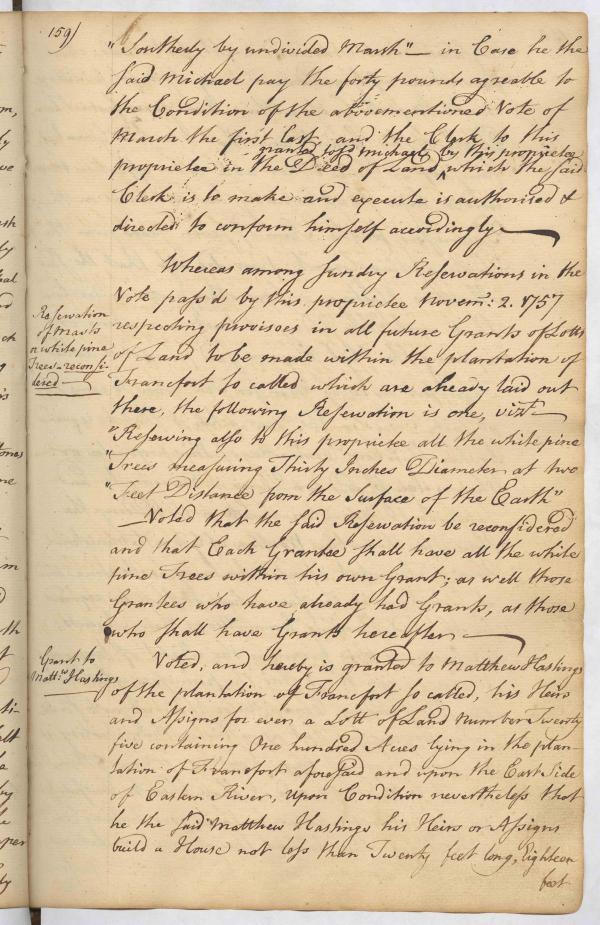 159)
"Southerly by undivided Marsh" — in Case he the
said Michael pay the forty pounds agreable to
the Condition of the abovementioned Vote of
March the first last, and the Clerk to this
granted to sd Michael by this proprietee
proprietee in the Deed of Land ‸ which the said
Clerk is to make and execute is authorised &
directed to conform himself accordingly —
Whereas among sundry Reservations in the
Vote pass'd by this proprietee Novemr: 2. 1757
respecting provisoes in all future Grants of Lotts
of Land to be made within the plantation of
Francfort so called which are already laid out
there, the following Reservation is one, vizt. —
"Reserving also to this proprietee all the white pine
"Trees measuring Thirty Inches Diameter at two
"Feet Distance from the Surface of the Earth"
— Voted that the said Reservation be reconsidered
and that Each Grantee shall have all the white
pine Trees within his own Grant; as well those
Grantees who have already had Grants, as those
who shall have Grants hereafter —
Reservation
of Masts
or white pine
Trees - reconsi-
dered —
Voted, and hereby is granted to Matthew Hastings
of the plantation of Francfort so called, his Heirs
and Assigns for ever a Lott of Land number Twenty
five containing One hundred Acres lying in the plan-
tation of Francfort aforesaid and upon the East Side
of Eastern River, upon Condition nevertheless that
he the said Matthew Hastings his Heirs or Assigns
build a House not less than Twenty feet long, Eighteen
feet
Grant to
Matth: Hastings